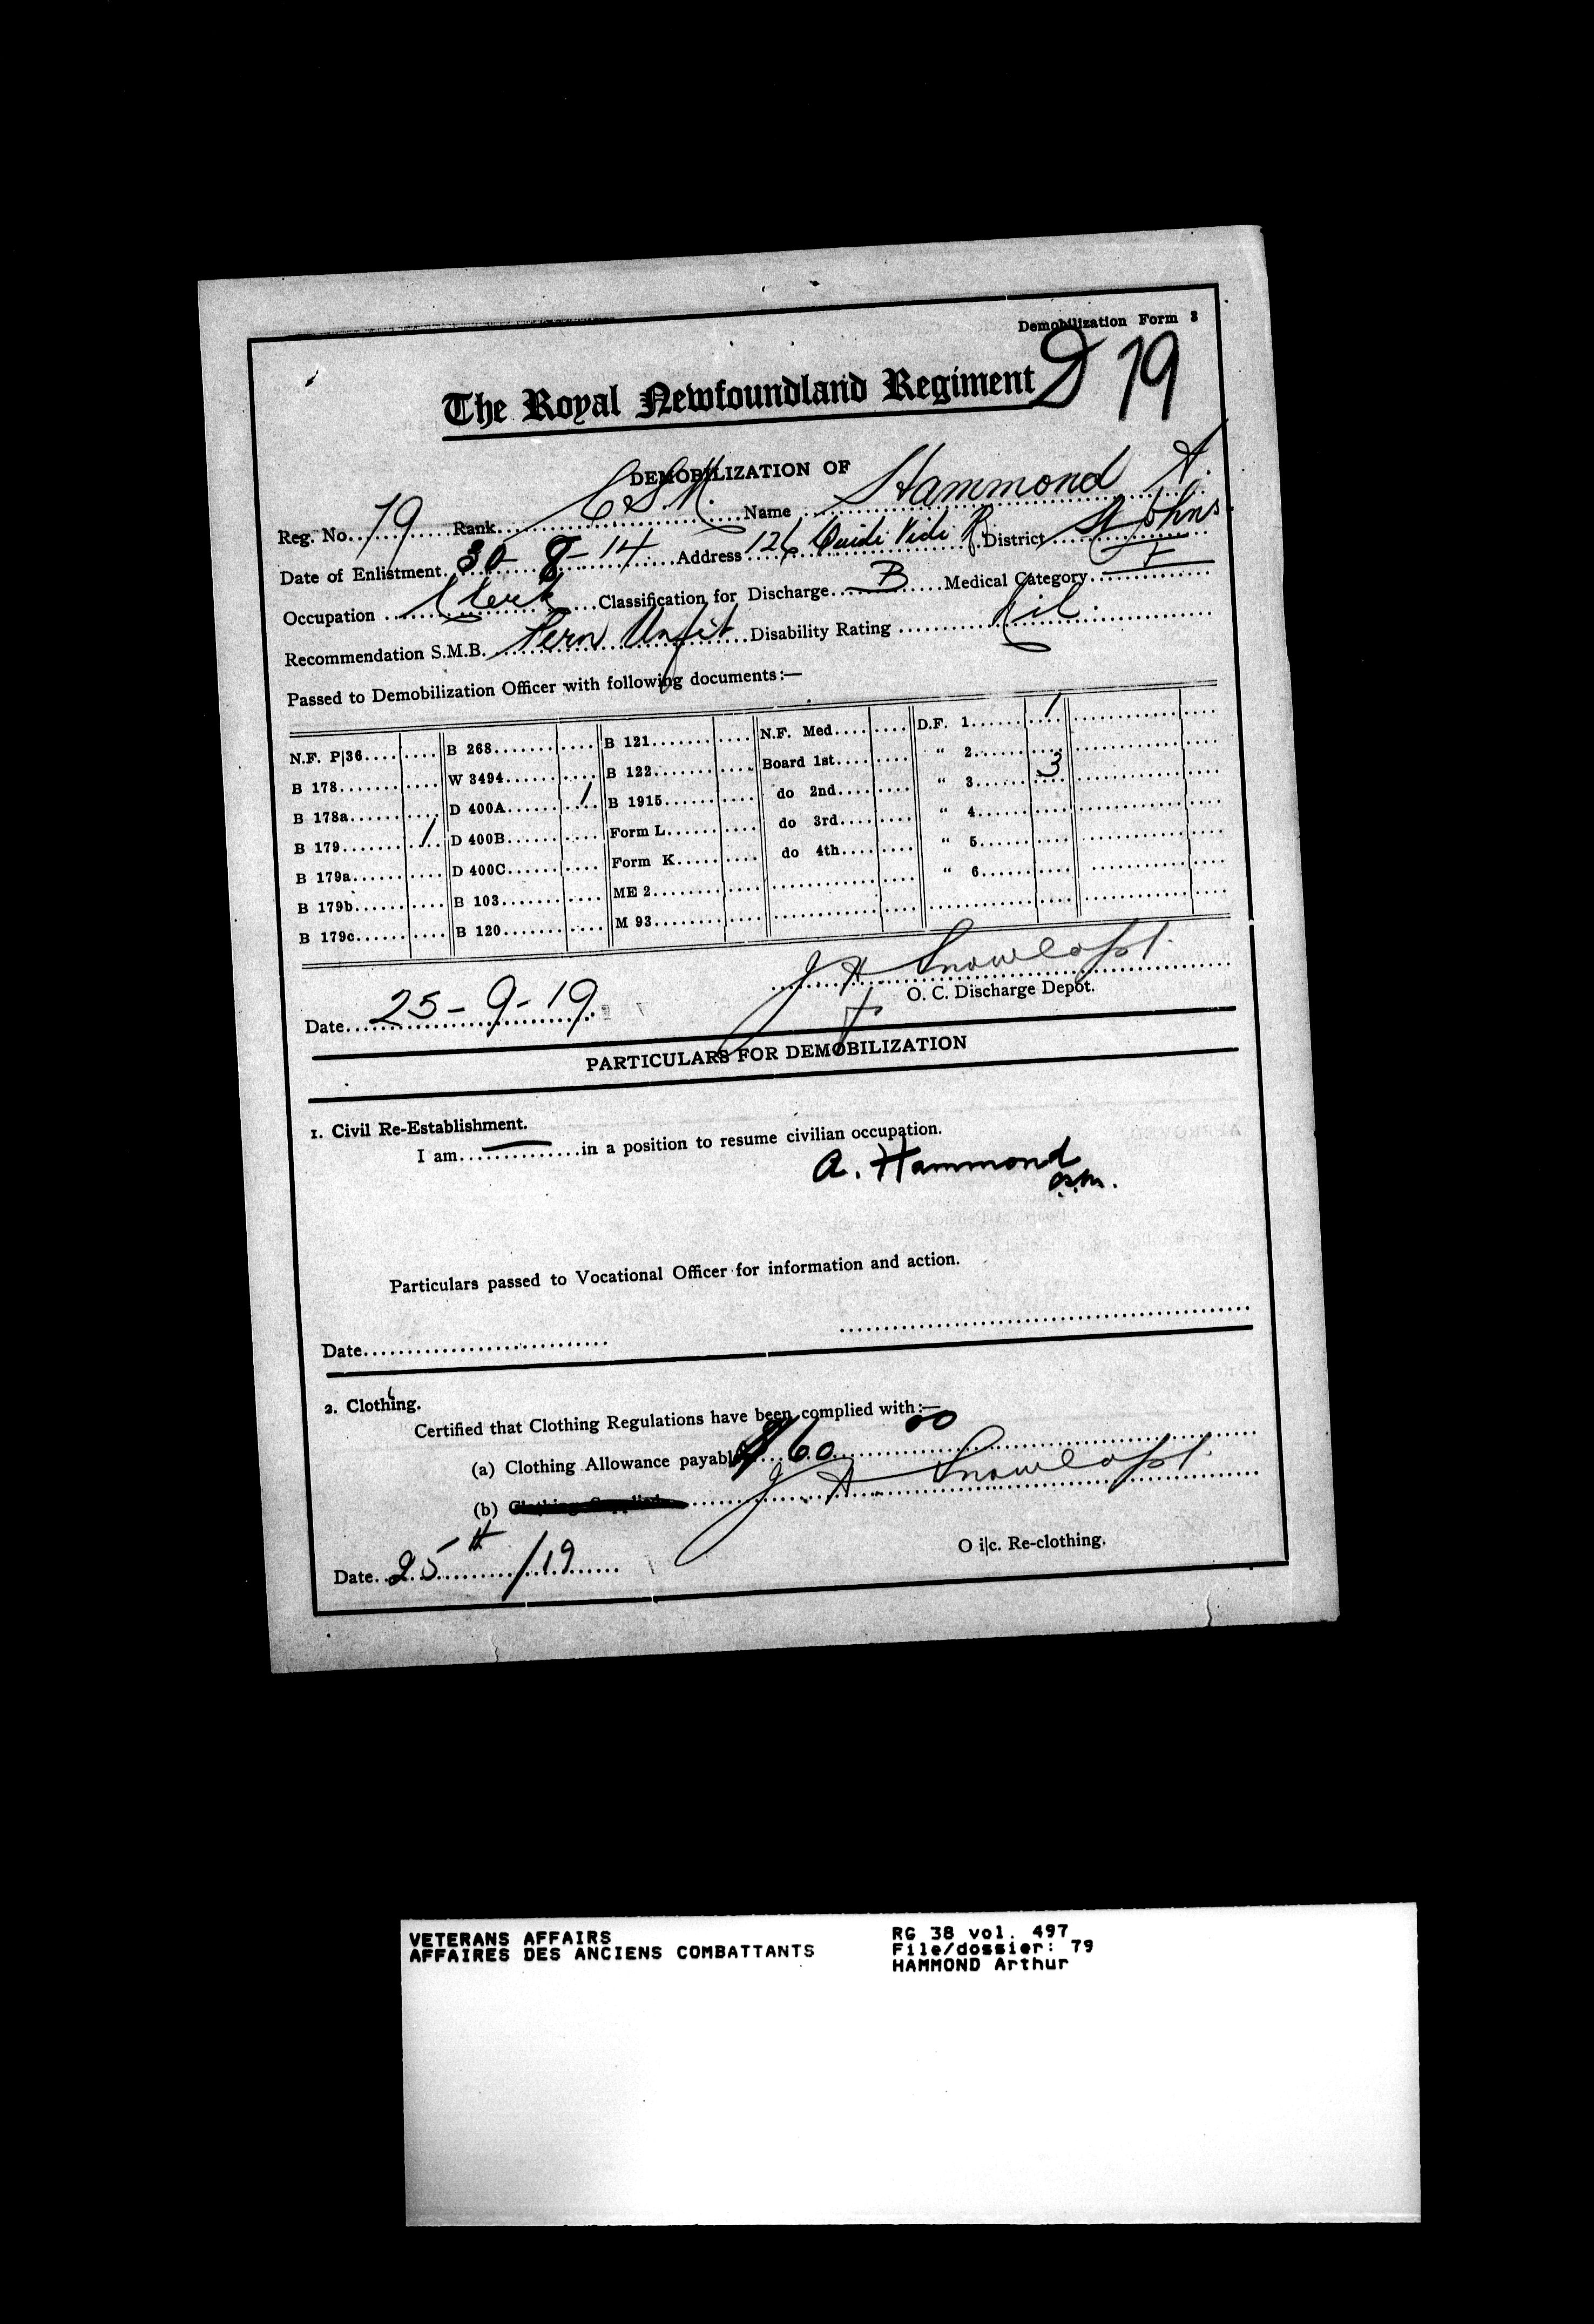 Demobilization Form 3
The Royal Newfoundland Regiment D 79
DEMOBILIZATION OF
Reg. No. 79 Rank C.S.M. Name Hammond A.
Date of Enlistment 30-8-14 Address 126 Quidi Vidi R. District St Johns
Occupation Clerk Classification for Discharge B Medical Category F
Recommendation S.M.B. Perm Unfit Disability Rating Nil.
Passed to Demobilization Officer with following documents:—
N.F. P|36 B 268 B 121 N.F. Med. D.F. 1 1
B 178 W 3494 B 122 Board 1st " 2
B 178a D 400A 1 B 1915 do 2nd " 3 3
B 179 1 D 400B Form L do 3rd " 4
B 179a D 400C Form K do 4th " 5
B 179b B 103 ME 2 " 6
B 179c B 120 M 93
Date 25-9-19 J H Snow Capt.
O. C. Discharge Depot.
PARTICULARS FOR DEMOBILIZATION
1. Civil Re-Establishment.
I am — in a position to resume civilian occupation.
A. Hammond
Particulars passed to Vocational Officer for information and action.
Date
2. Clothing.
Certified that Clothing Regulations have been complied with:—
(a) Clothing Allowance payable $60 00
(b) Clothing Supplied J H Snow Capt.
O i|c. Re-clothing.
Date 25th /19
VETERANS AFFAIRS RG 38 vol. 497
AFFAIRES DES ANCIENS COMBATTANTS File/dossier: 79
HAMMOND Arthur